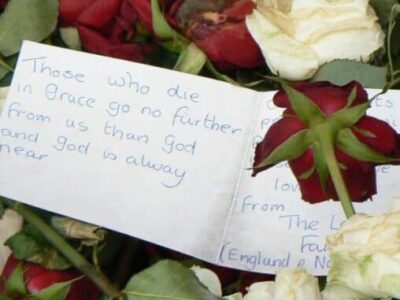 Those who die
in grace go no further
from us than God
and god is alway
near
ts
p
lo
from
The L
Fa
(England & N